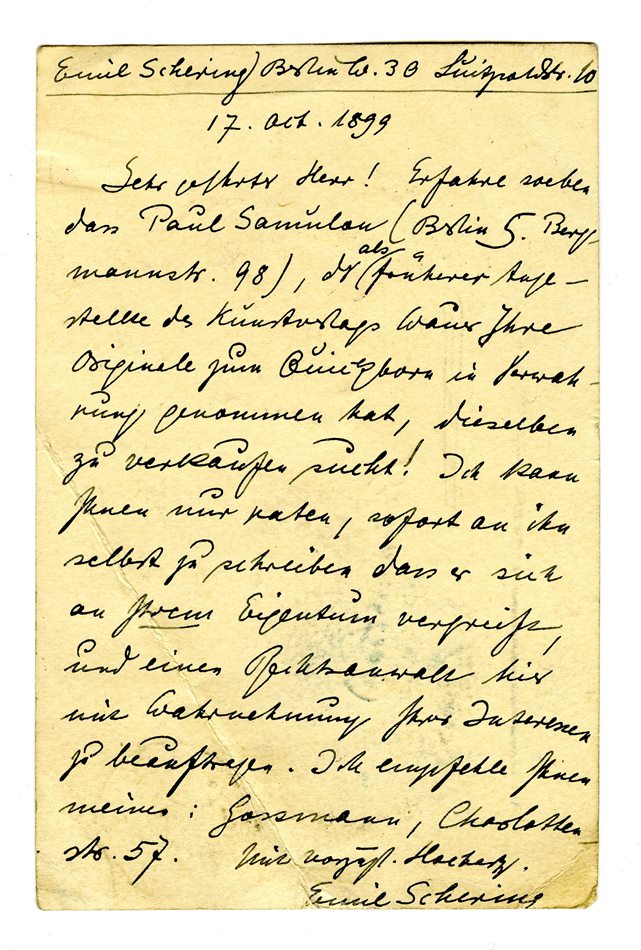 Emil Schering, Berlin W. 30 Luitpoldstr. 10
17. Oct. 1899
Sehr geehrter Herr! Erfahre soeben
dass Paul Samulon (Berlin S. Berg-
mannstr. 98), der (als früherer Ange-
stellte des Kunstverlags Ihre
Originale zum Quickborn in Verwah-
rung genommen hat, dieselben
zu verkaufen sucht! Ich kann
Ihnen nur raten, sofort an ihn
selbst zu schreiben dass er sich
an Ihrem Eigentum vergreift,
und einen Rechtsanwalt hier
mit Wahrnehmung Ihrer Interessen
zu beauftragen. Ich empfehle Ihnen
meinen: Gossmann, Charlotten-
str. 57. Mit vorzügl. Hochacht.
Emil Schering